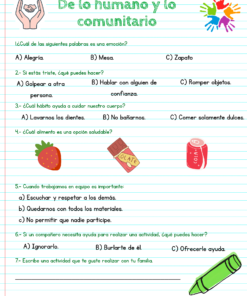 De lo humano y lo
comunitario
1.¿Cuál de las siguientes palabras es una emoción?
A) Alegría. B) Mesa. C) Zapato
2.- Si estás triste, ¿qué puedes hacer?
A) Golpear a otra persona. B) Hablar con alguien de confianza. C) Romper objetos.
3.- ¿Cuál hábito ayuda a cuidar nuestro cuerpo?
A) Lavarnos los dientes. B) No bañarnos. C) Comer solamente dulces.
4.- ¿Cuál alimento es una opción saludable?
5.- Cuando trabajamos en equipo es importante:
a) Escuchar y respetar a los demás.
b) Quedarnos con todos los materiales.
c) No permitir que nadie participe.
6.- Si un compañero necesita ayuda para realizar una actividad, ¿qué puedes hacer?
A) Ignorarlo. B) Burlarte de él. C) Ofrecerle ayuda.
7.- Escribe una actividad que te guste realizar con tu familia.